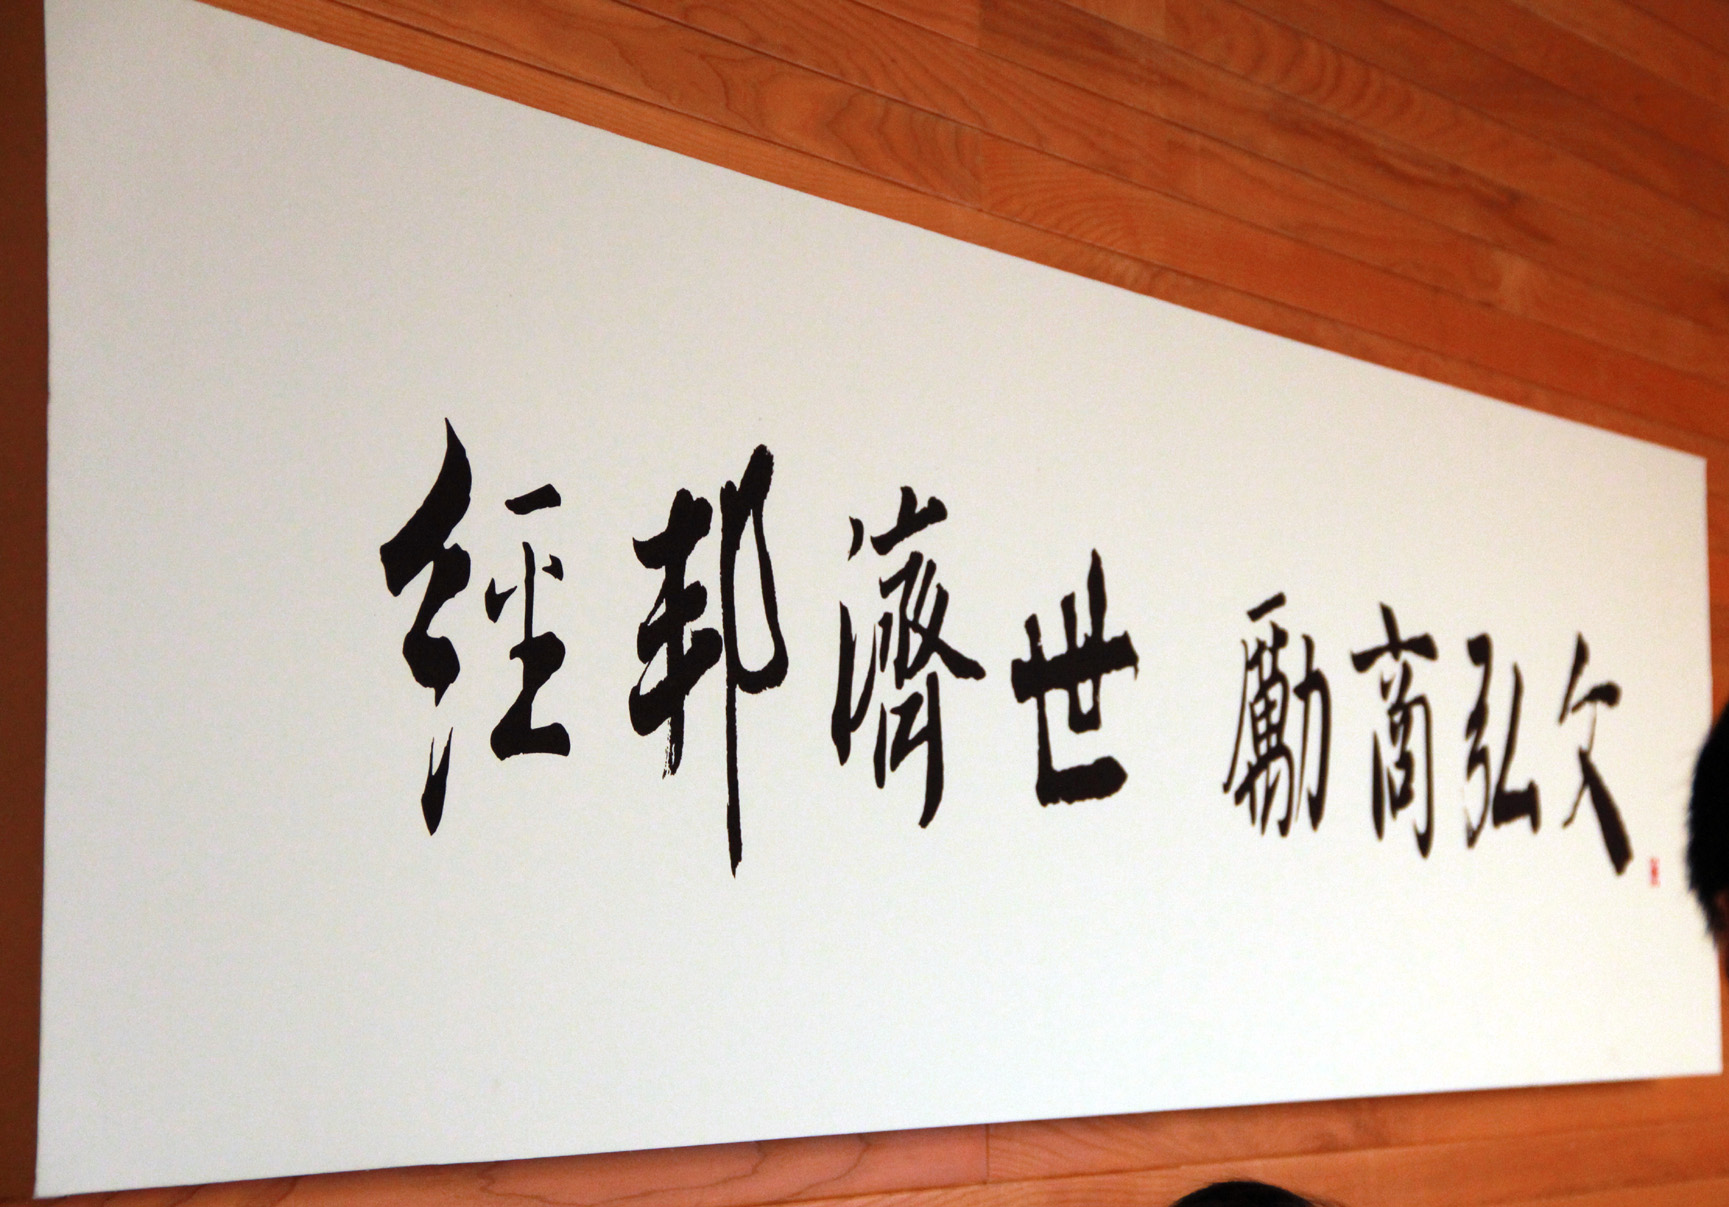 經邦濟世 勵商弘文